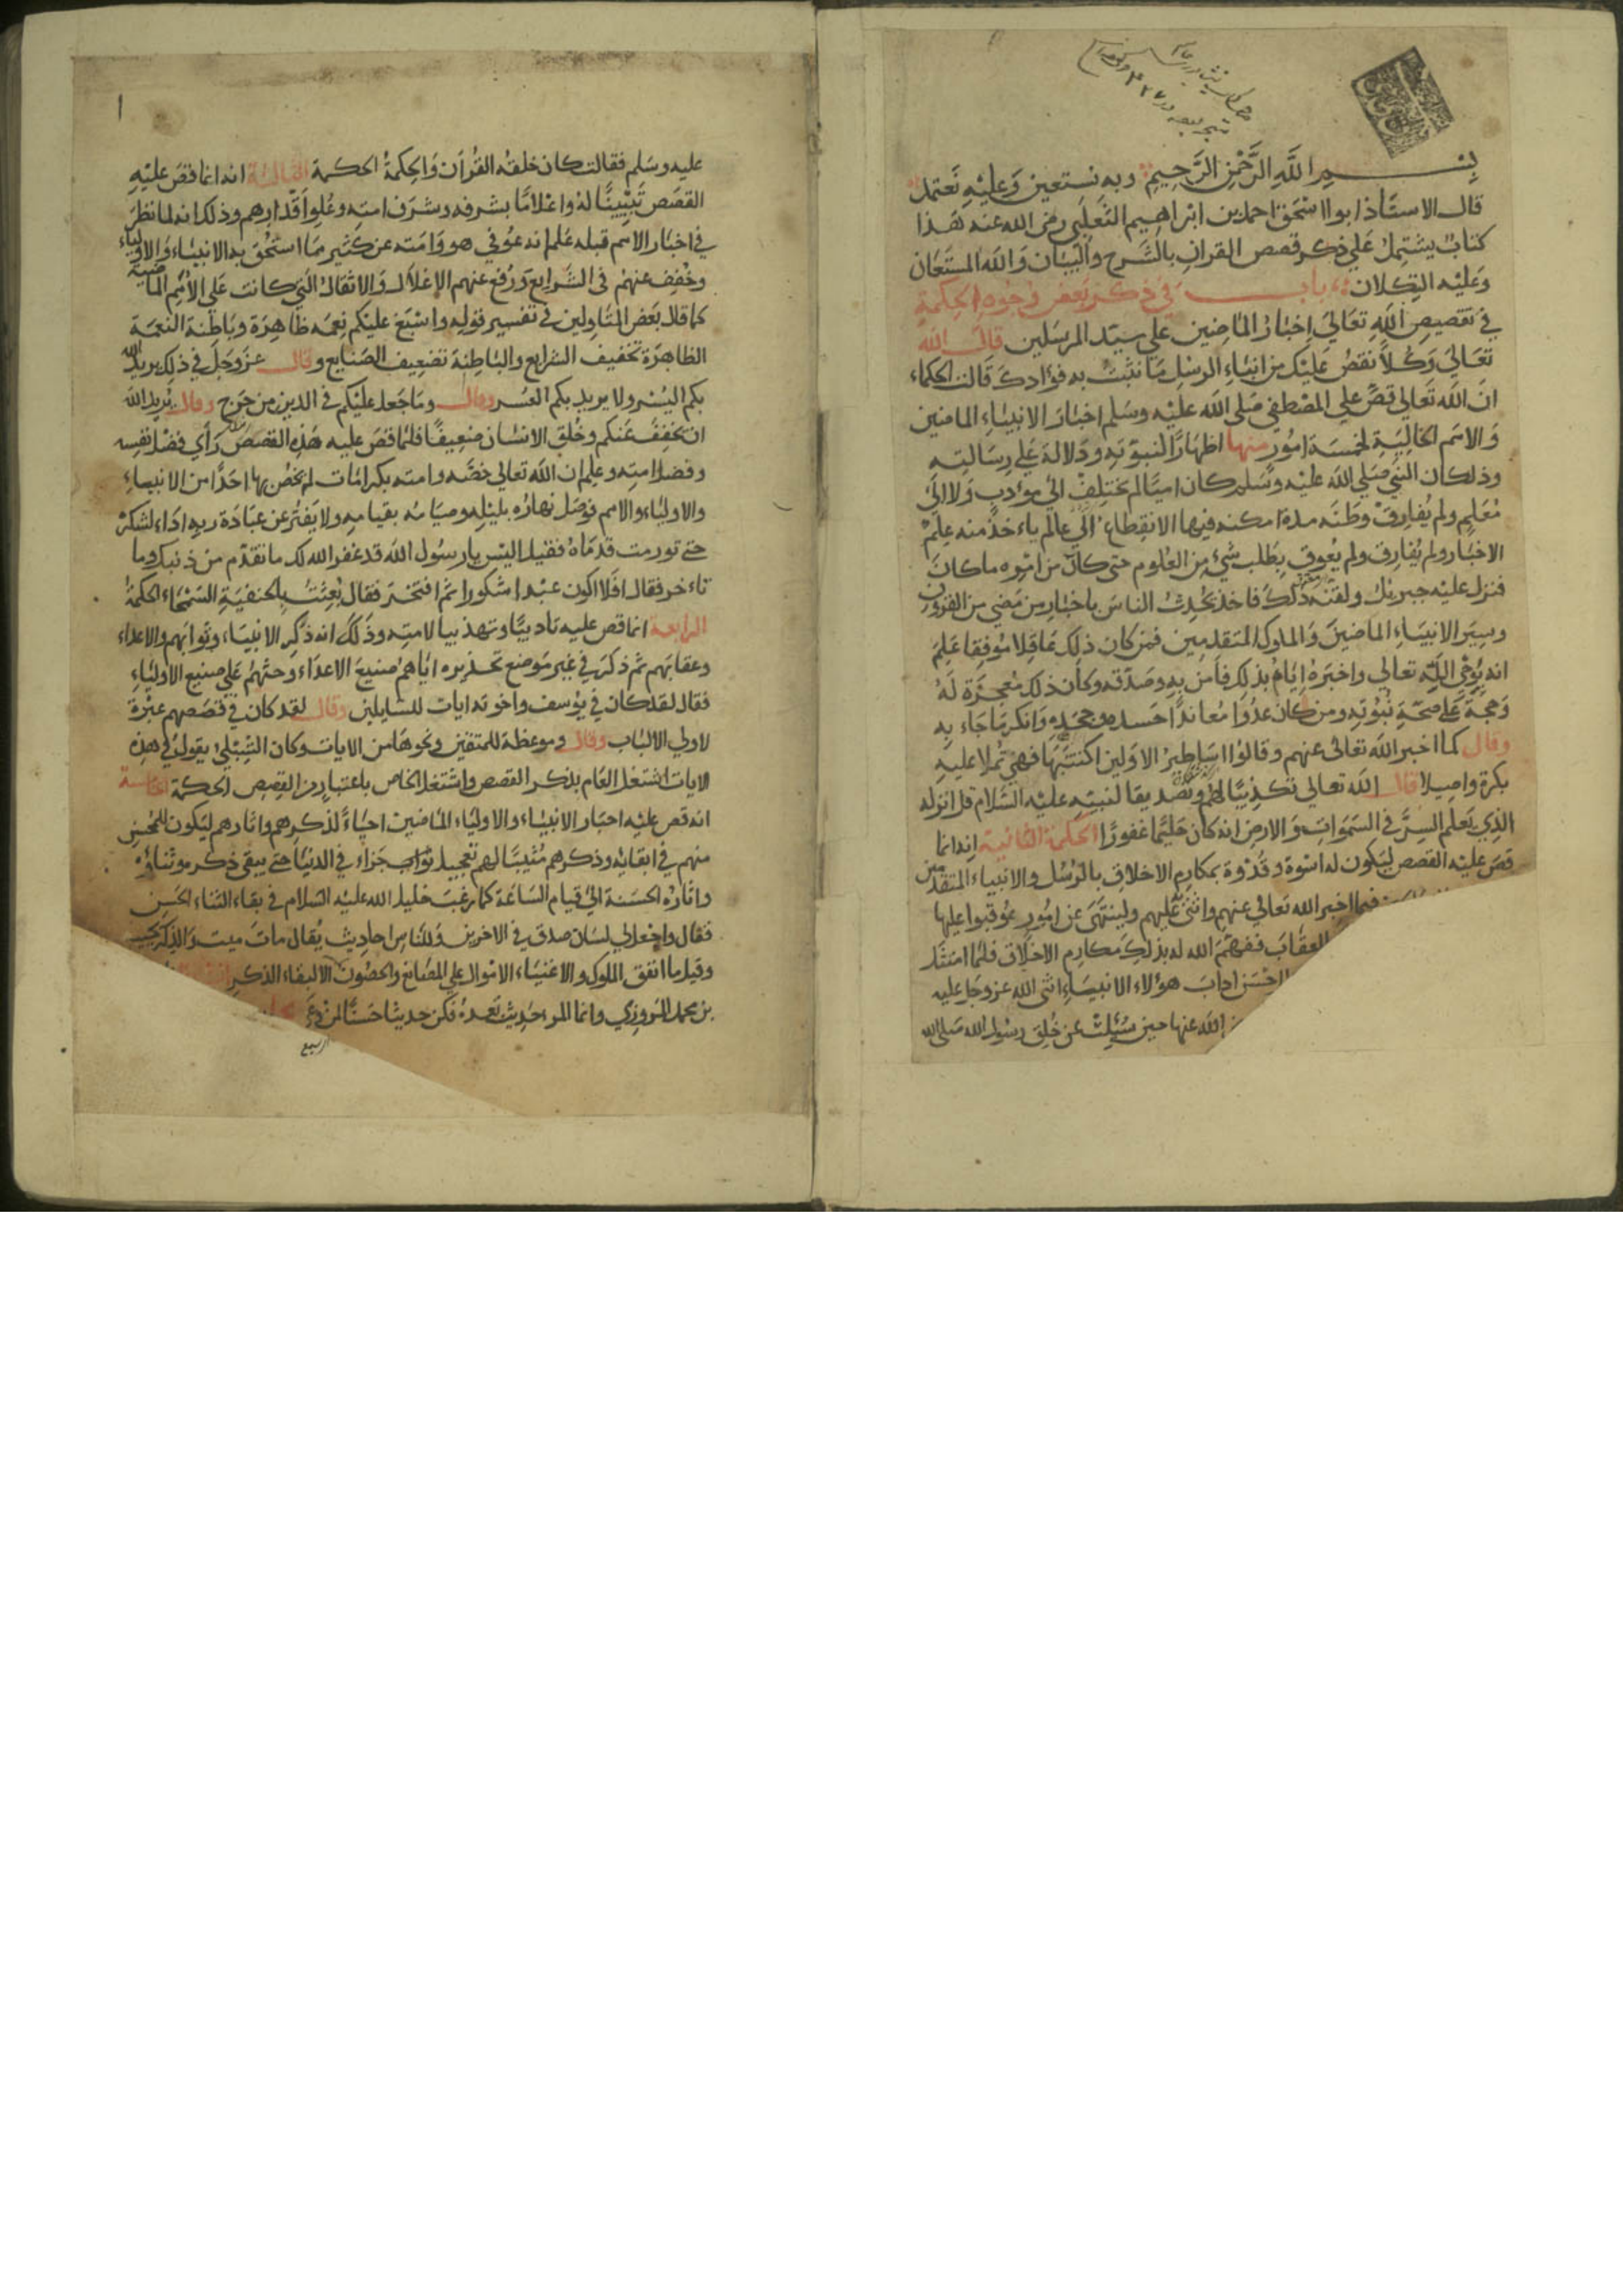 بسم الله الرحمن الرحيم وبه نستعين وعليه نعتمد
قال الاستاذ ابوا اسحق احمد بن ابراهيم الثعلبي رضى الله عنه هذا
كتاب يشتمل علي ذكر قصص القران بالشرح والبيان والله المستعان
وعليه التكلان باب في ذكر بعض وجوه الحكمة
في تقصيص الله تعالي اخبار الماضين علي سيد المرسلين قال الله
تعالي وكلا نقص عليك من انباء الرسل ما نثبت به فؤادك قالت الحكماء
ان الله تعالي قص علي المصطفي صلى الله عليه وسلم اخبار الانبياء الماضين
والامم الخالية لخمسة امور منها اظهارا لنبوته ودلالة علي رسالته
وذلك ان النبي صلي الله عليه وسلم كان اميا لم يختلف الي مؤدب ولا الي
معلم ولم يفارق وطنه مدة امكنه فيها الانقطاع الي عالم ياءخذ منه علم
الاخبار ولم يفارق ولم يعوق بطلب شئ من العلوم حتى كان من امره ما كان
فنزل عليه جبريل ولقنه ذلك فاخذ يحدث الناس باخبار من مضي من القرون
وسير الانبياء الماضين والملوك المتقدمين فمن كان ذلك عاقلا موفقا علم
انه يوحى الله تعالي واخبره اياه بذلك فامن به وصدقه وكان ذلك معجزة له
وحجة على صحة نبوته ومن كان عدوا معاندا حسده وجحده وانكر ما جاء به
وقال كما اخبر الله تعالى عنهم وقالوا اساطير الاولين اكتتبها فهي تملا عليه
بكرة واصيلا قال الله تعالي تكذيبا لهم وتصديقا لنبيه عليه السلام قل انزله
الذي يعلم السر في السموات والارض انه كان حليما غفورا الحكمة الثانية انه انما
قص عليه القصص ليكون له اسوة وقدوة بمكارم الاخلاق بالرسل والانبياء المتقدمين
فيما اخبر الله تعالي عنهم واثنى عليهم ولينتهى عن امور عوقبوا عليها
العقاب ففهم الله له بذلك مكارم الاخلاق فلما امتثل
احسن اداب هؤلاء الانبياء اثنى الله عز وجل عليه
الله عنها حين سئلت عن خلق رسول الله صلى الله
عليه وسلم فقالت كان خلقه القرآن والحكمة الحكمة الثالثة انه انما قص عليه
القصص تبيينا له واعلاما بشرفه وشرف امته وعلوا قدارهم وذلك انه لما نظر
في اخبار الامم قبله علم انه عوفي هو وامته عن كثير مما استحق به الانبياء والاولياء
وخفف عنهم فى الشرايع ورفع عنهم الاغلال والاثقال التي كانت على الامم الماضية
كما قال بعض المتاولين في تفسير قوله واسبغ عليكم نعمه ظاهرة وباطنة النعمة
الظاهرة تخفيف الشرايع والباطنة تضعيف الصنايع وقال عز وجل في ذلك يريد الله
بكم اليسر ولا يريد بكم العسر وقال وما جعل عليكم في الدين من حرج وقال يريد الله
ان يخفف عنكم وخلق الانسان ضعيفا فلما قص عليه هذه القصص راي فضل نفسه
وفضل امته وعلم ان الله تعالي خصه وامته بكرامات لم يخص بها احدا من الانبياء
والاولياء والامم فوصل نهاره بليله وصيامه بقيامه ولا يفتر عن عبادة ربه اداء لشكره
حتى تورمت قدماه فقيل اليس يا رسول الله قد غفر الله لك ما تقدم من ذنبك وما
تاءخر فقال افلا اكون عبدا شكورا ثم افتخر فقال بعثت بالحنفية السمحاء الحكمة
الرابعة انما قص عليه تاديبا وتهذيبا لامته وذلك انه ذكر الانبياء وثوابهم والاعداء
وعقابهم ثم ذكر في غير موضع تحذيره اياهم صنيع الاعداء وحثهم علي صنيع الاولياء
فقال لقد كان في يوسف واخوته ايات للسايلين وقال لقد كان في قصصهم عبرة
لاولي الالباب وقال وموعظة للمتقين ونحوها من الايات وكان الشبلي يقول في هذه
الايات اشتغل العام بذكر القصص واشتغل الخاص باعتبار من القصص الحكمة الخامسة
انه قص عليه اخبار الانبياء والاولياء الماضين احياء لذكرهم واثارهم ليكون للمحسن
منهم في ابقائه وذكرهم مثيبا لهم تعجيل ثواب جزاء في الدنيا حتى يبقى ذكره وثناؤه
واثاره الحسنة الي قيام الساعة كما رغب خليل الله عليه السلام في بقاء الثناء الحسن
فقال واجعل لي لسان صدق في الاخرين وللناس احاديث يقال مات ميت والذكر يحييه
وقيل ما انفق الملوك والاغنياء الاموال علي المصانع والحصون الا لبقاء الذكر
بن محمد المروزي وانما المرء حديث بعده فكن حديثا حسنا لمن وعى